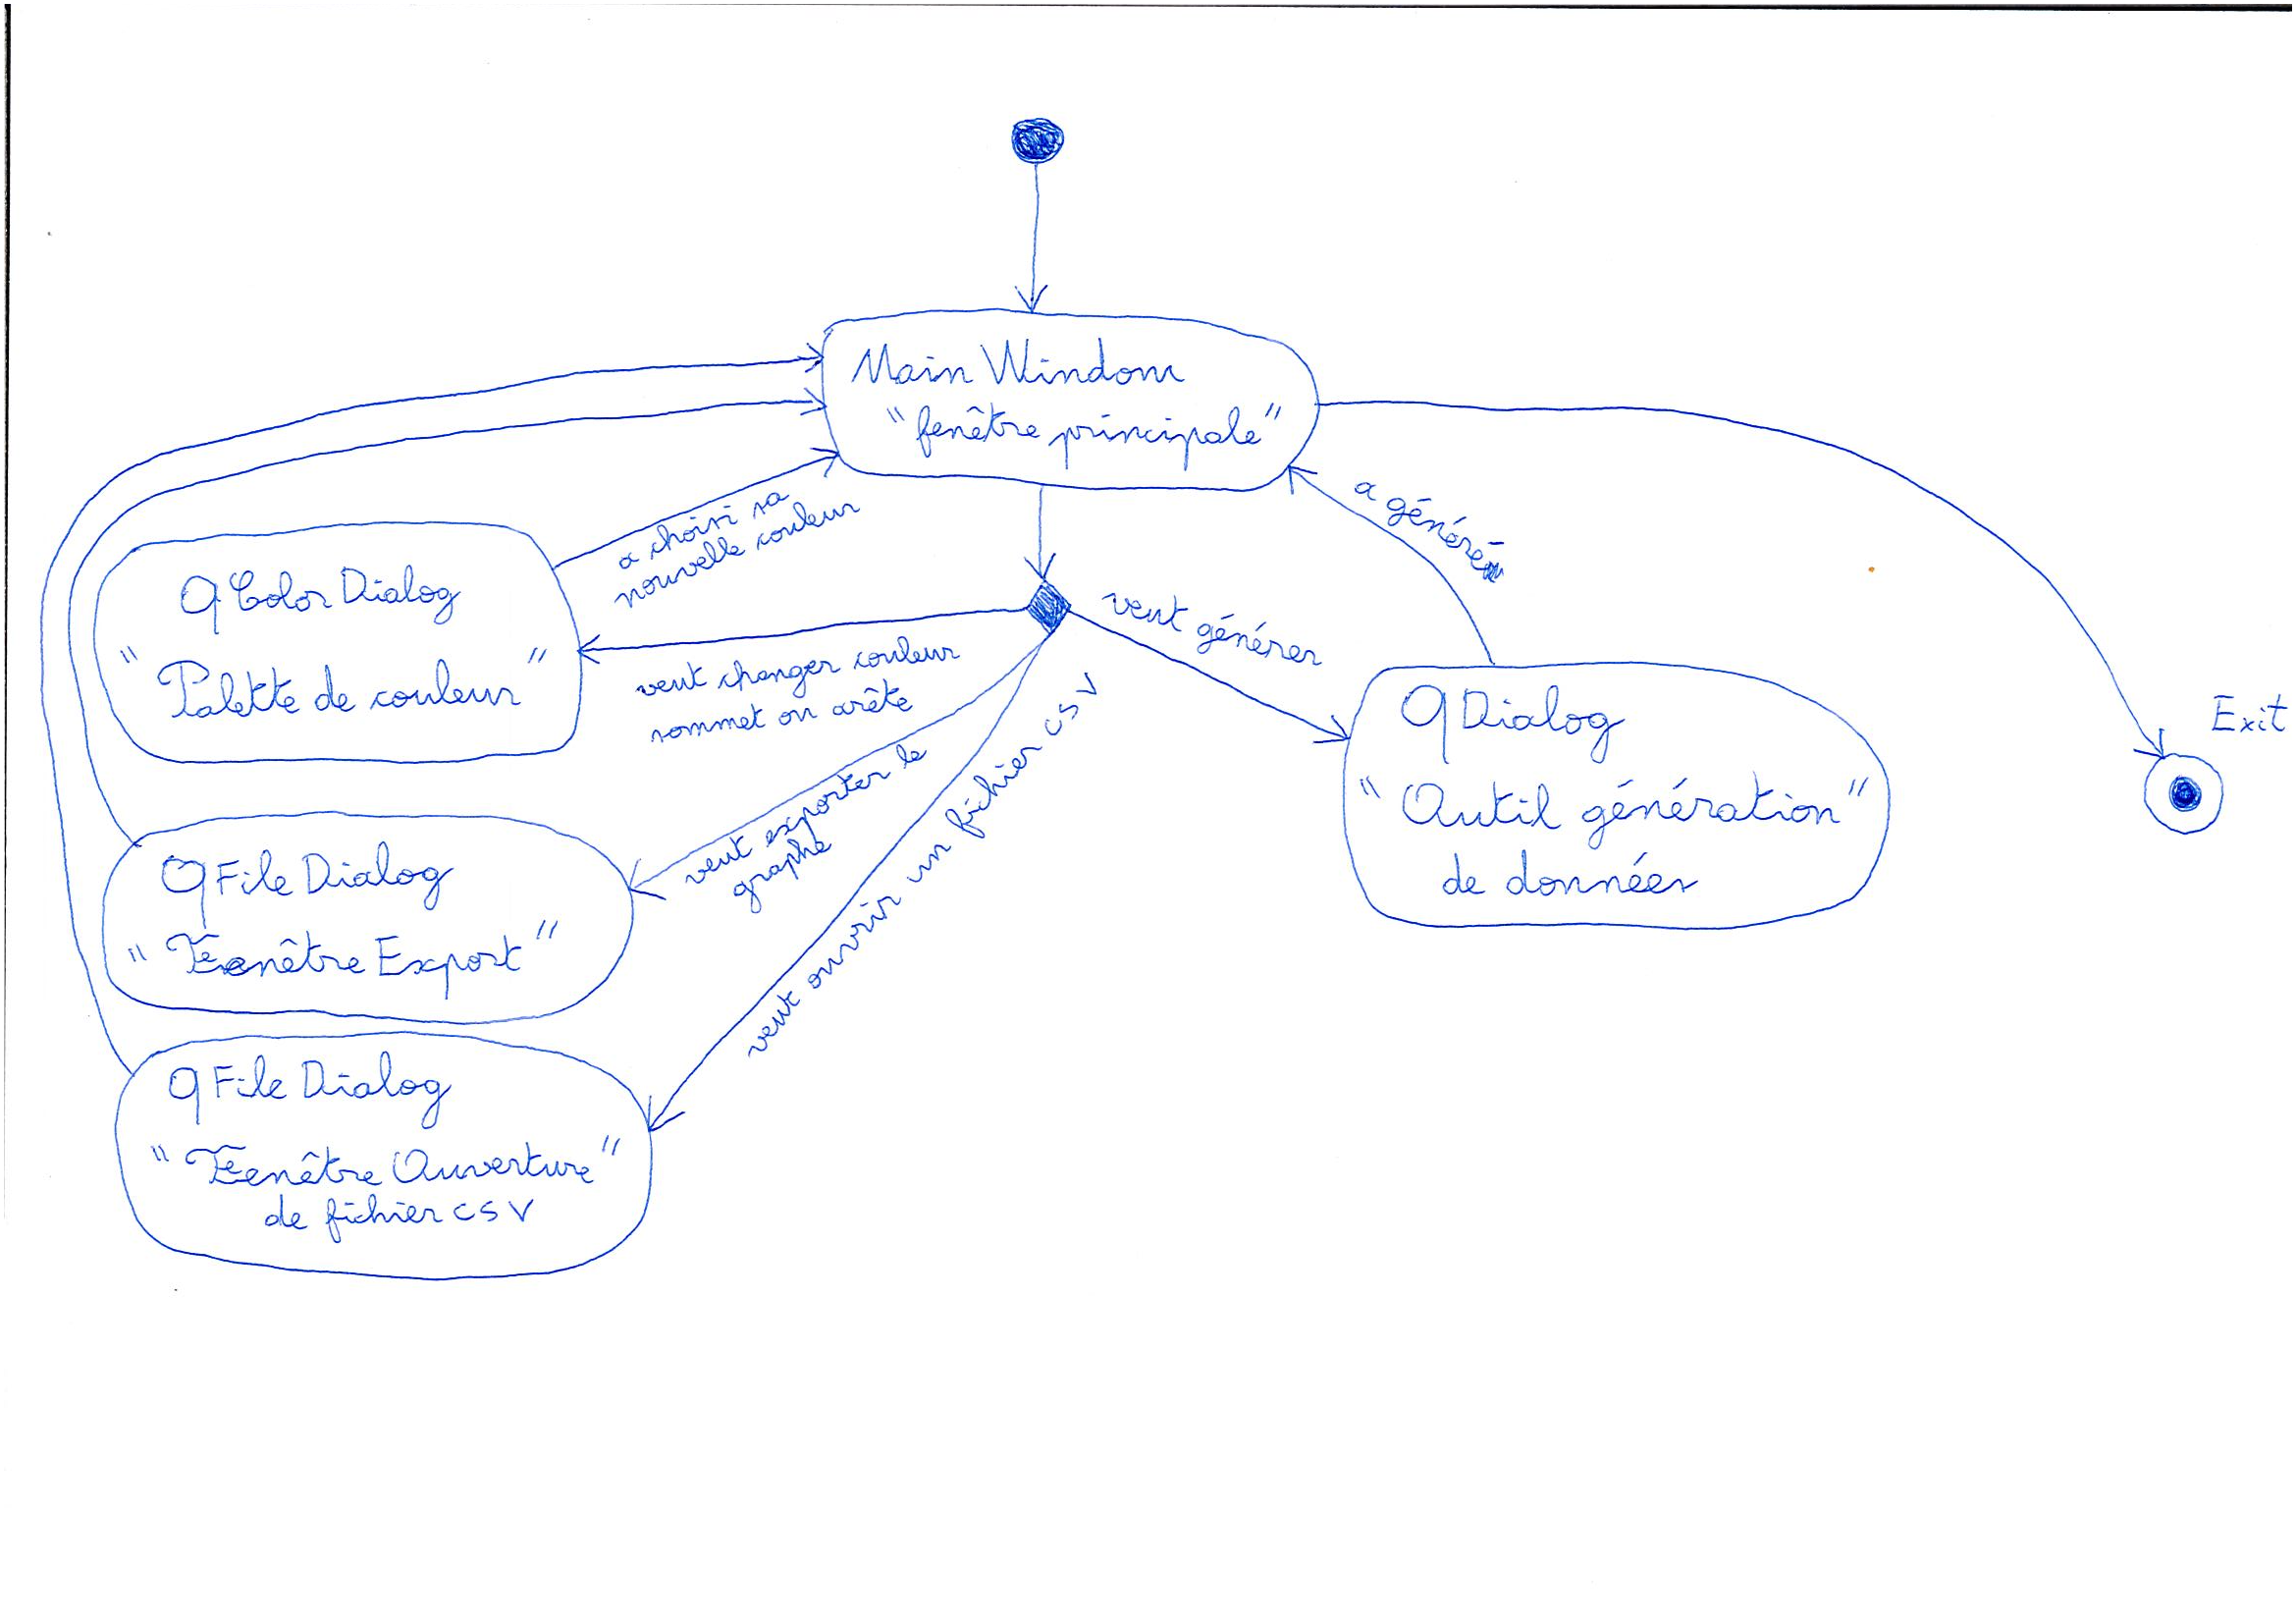 Main Window
"fenêtre principale"
a choisi sa
nouvelle couleur
a généré
QColor Dialog
"Palette de couleur"
veut changer couleur
sommet ou arête
veut générer
QDialog
"Outil génération"
de données
Exit
veut exporter le
graphe
veut ouvrir un fichier csv
QFile Dialog
"Fenêtre Export"
QFile Dialog
"Fenêtre Ouverture"
de fichier csv